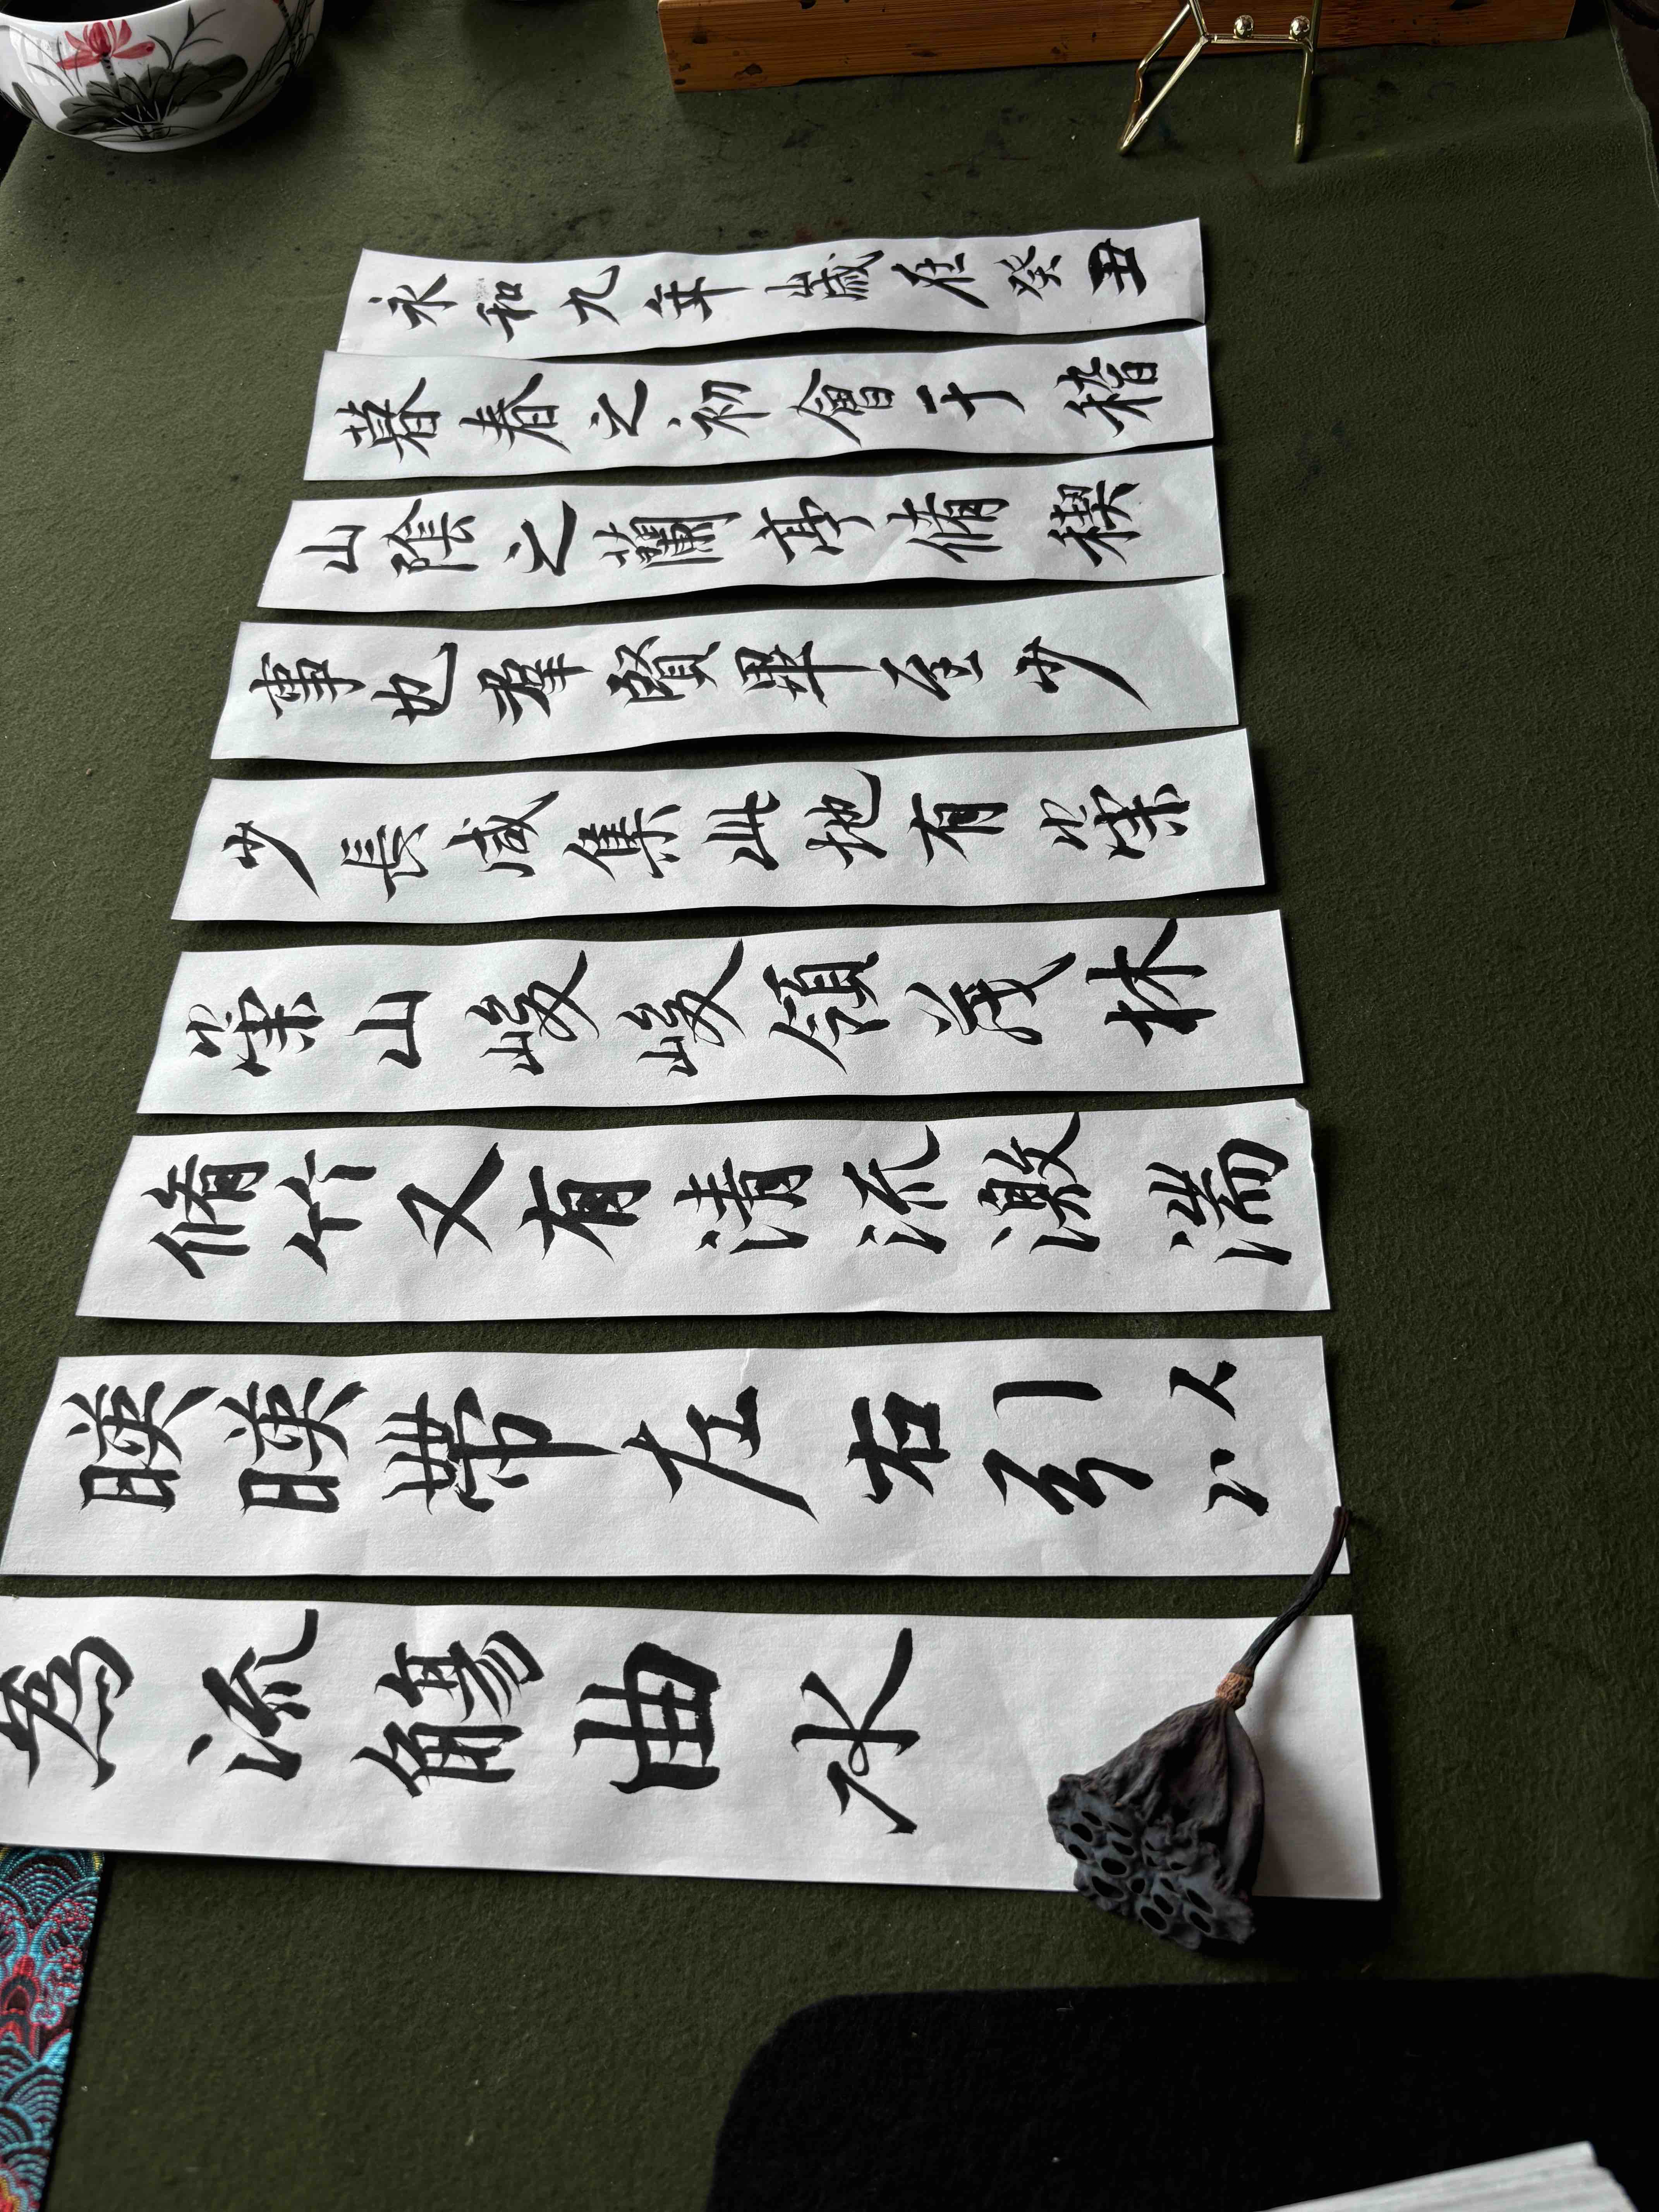 永和九年歲在癸丑
暮春之初會于稽
山陰之蘭亭脩禊
事也羣賢畢至少
少長咸集此地有崇
崇山峻峻領茂林
脩竹又有清流激湍
暎暎帶左右引以
為流觴曲水